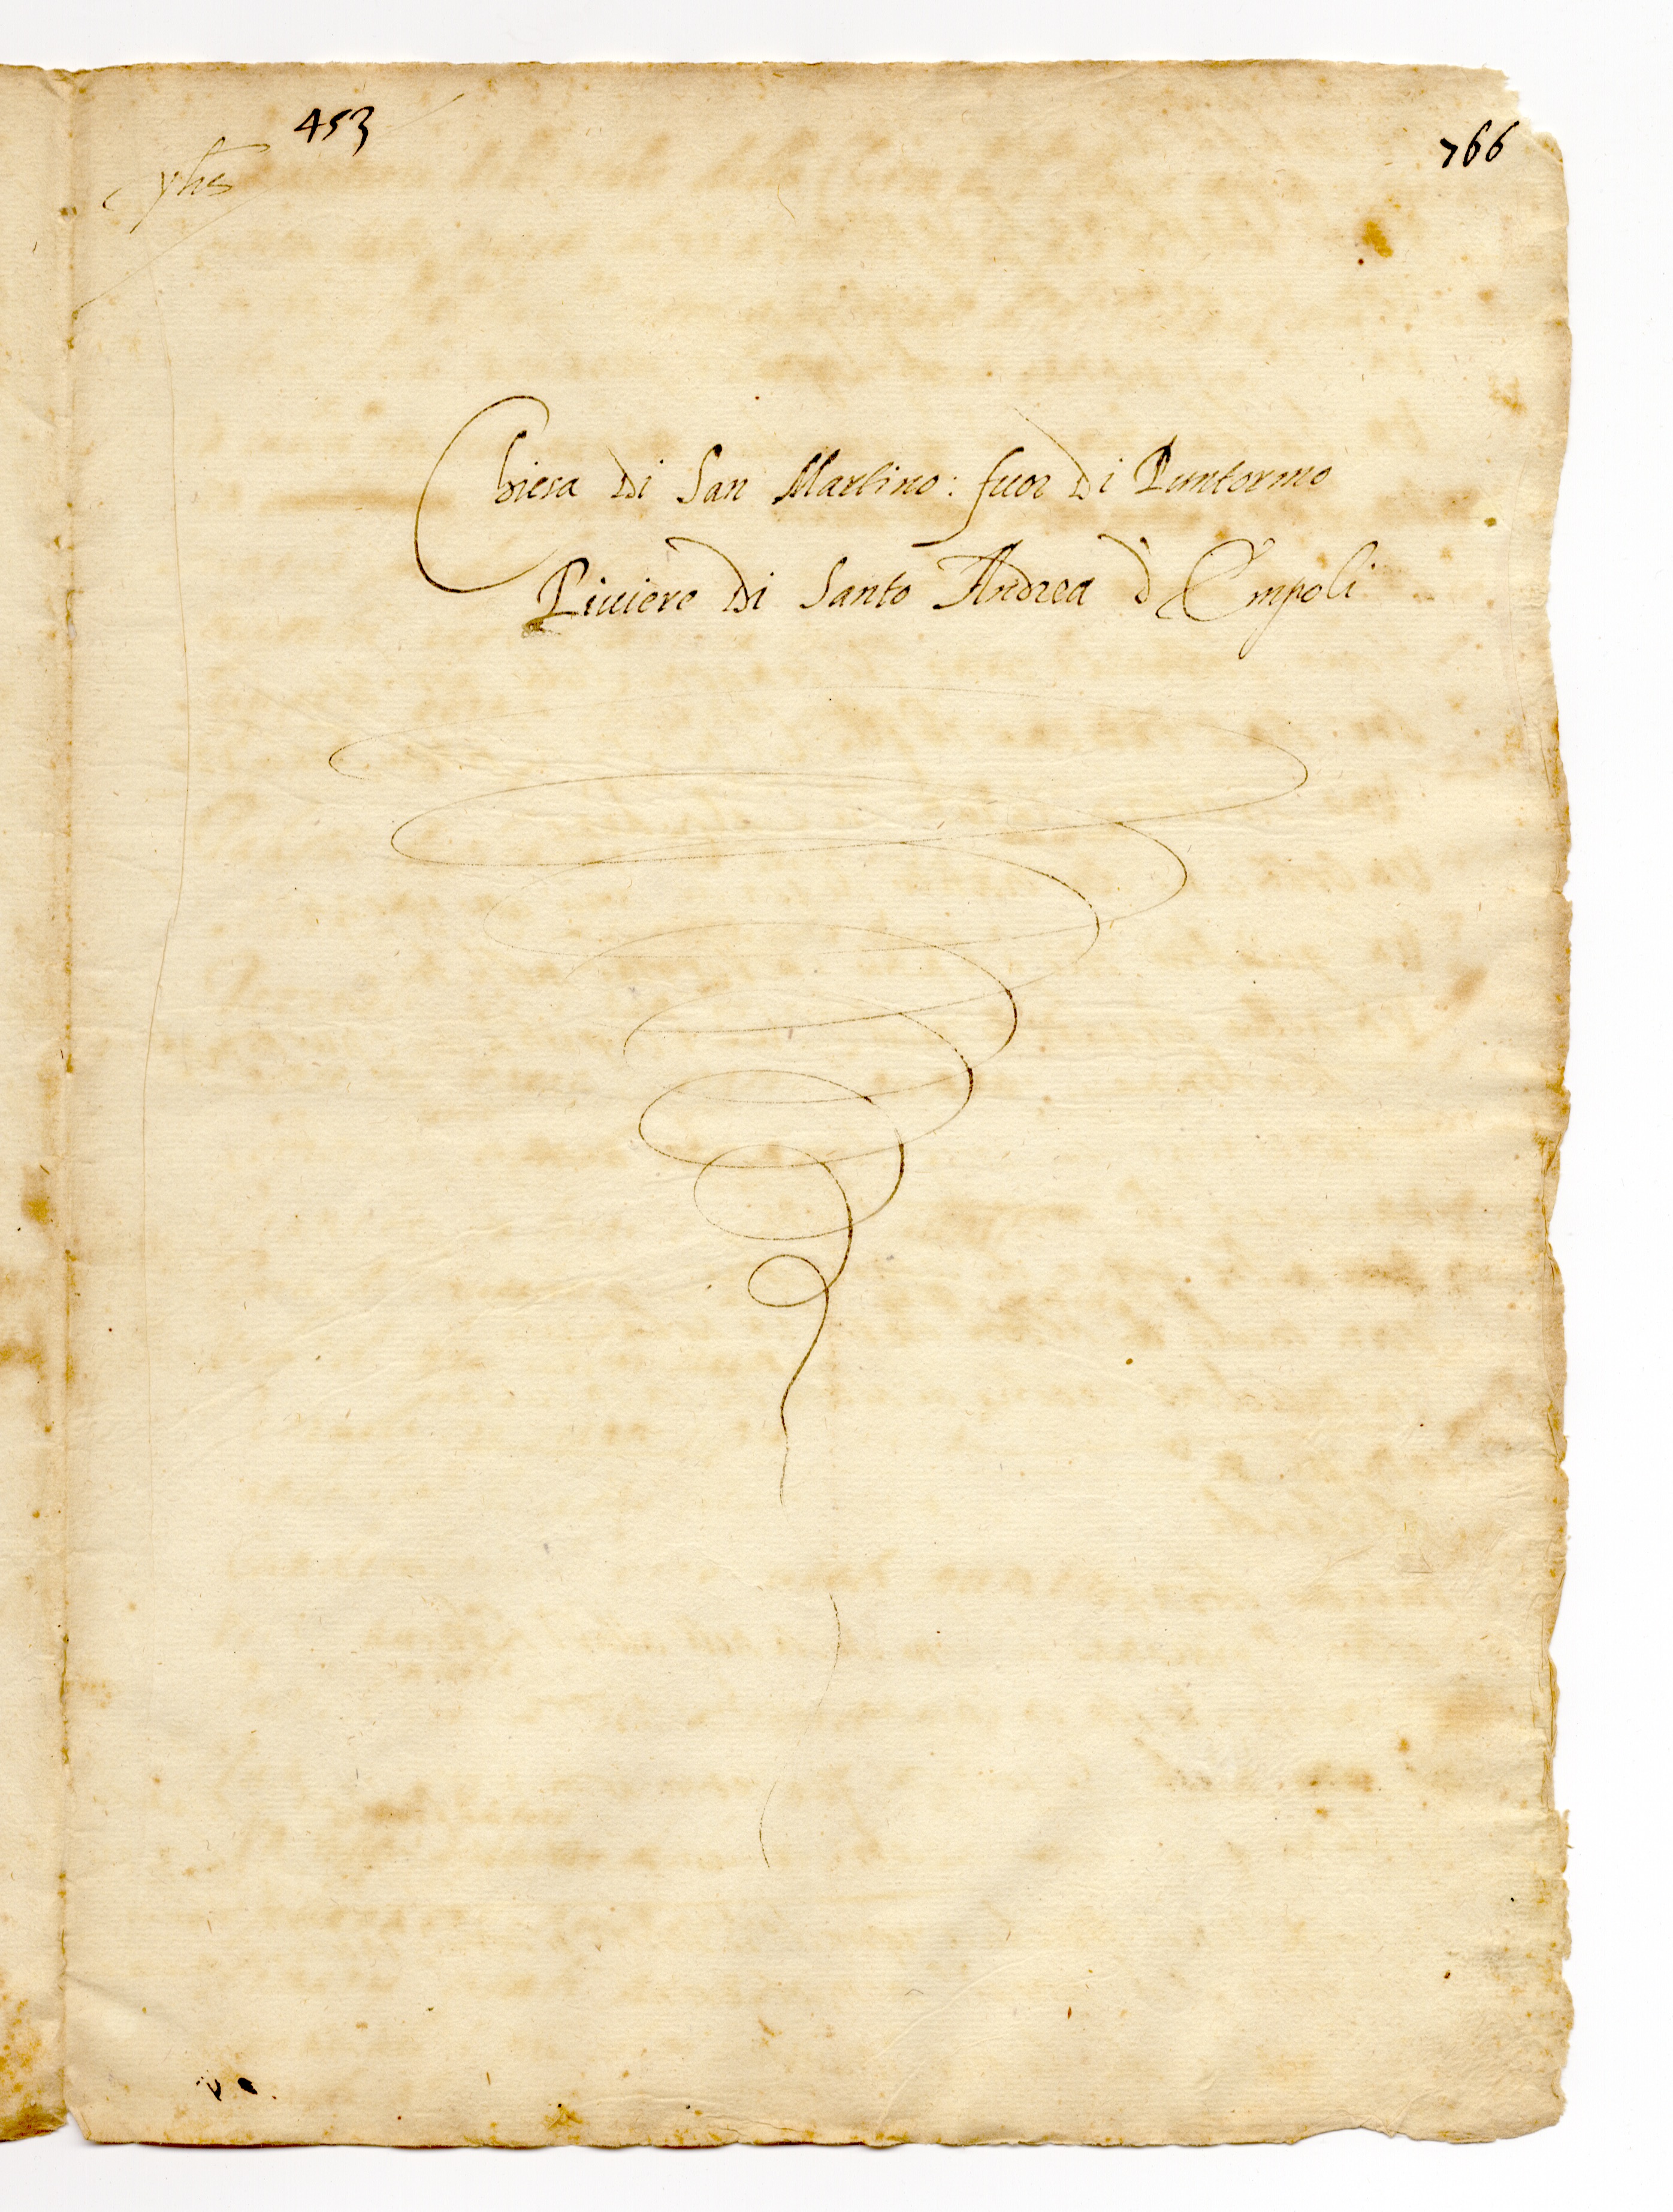 453
766
yhs
Chiesa di San Martino: fuor di Puntormo
Piuiere di Santo Andrea d Empoli